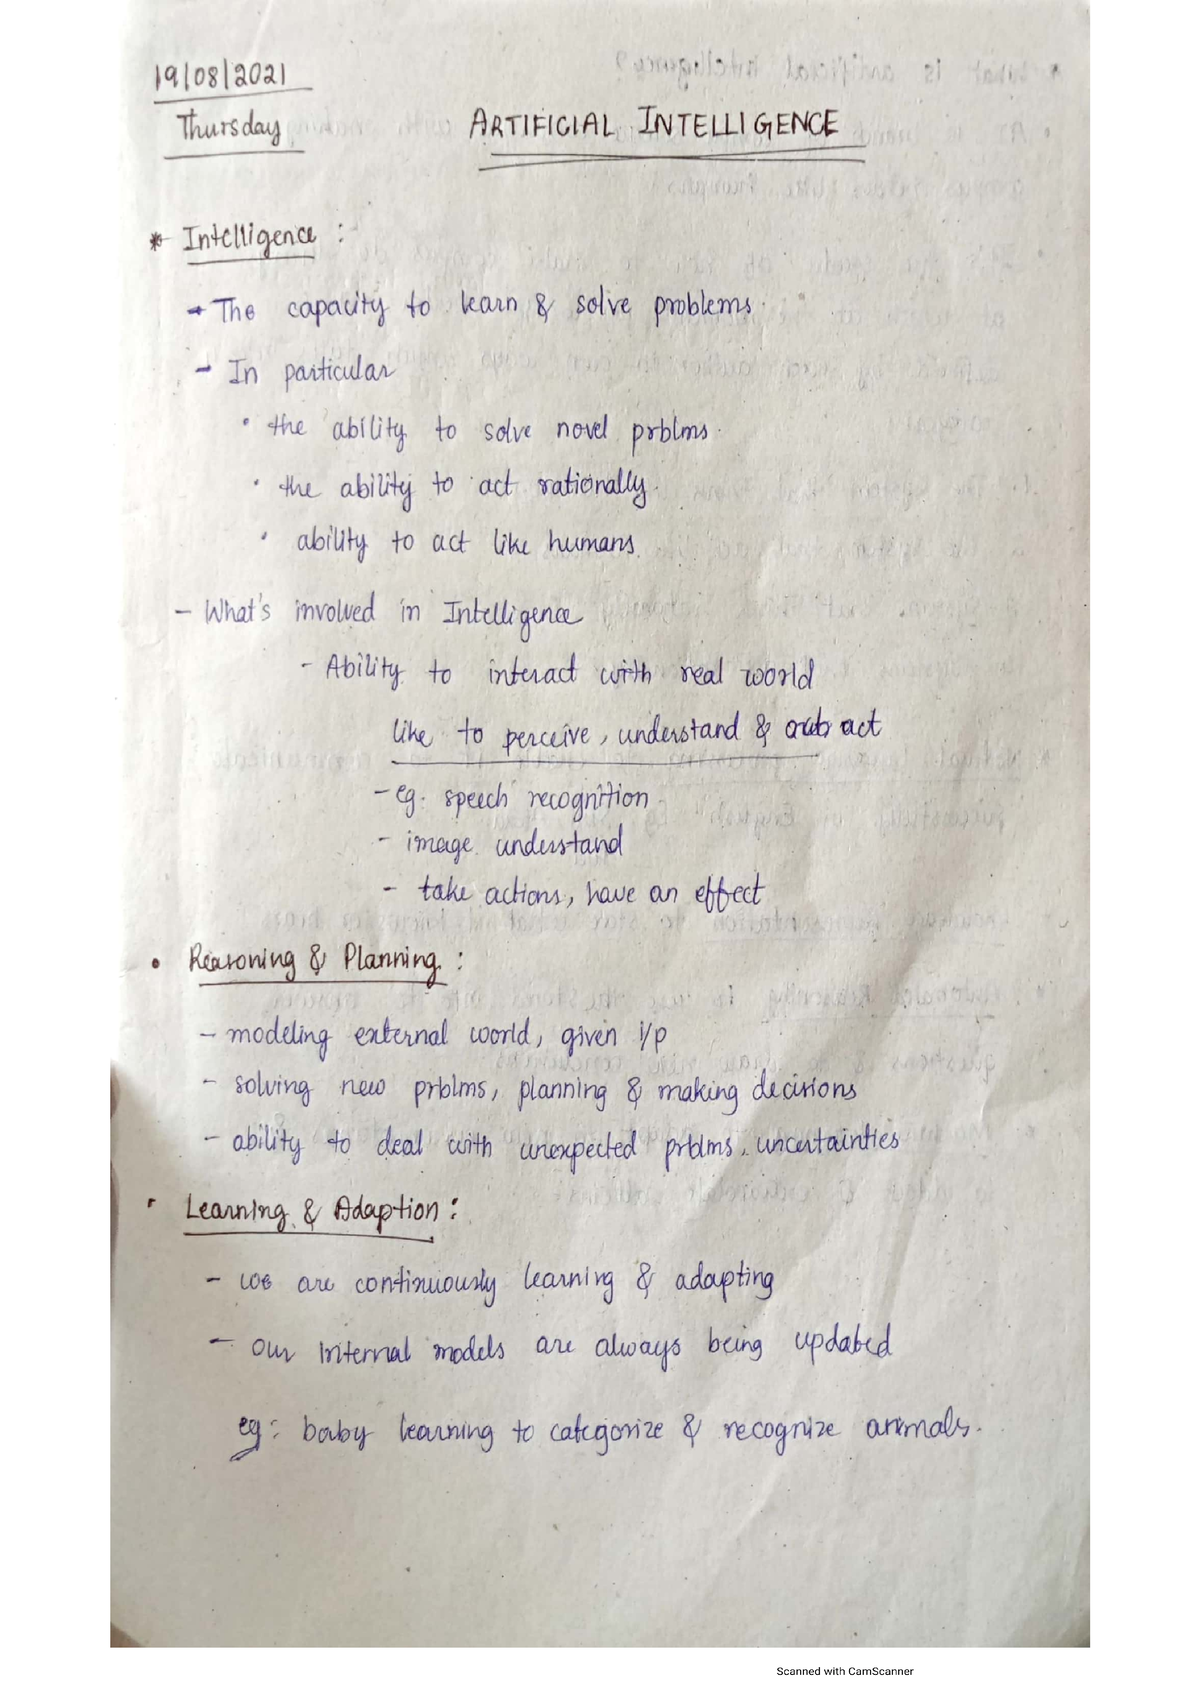 19/08/2021
Thursday
ARTIFICIAL INTELLIGENCE
* Intelligence :
→ The capacity to learn & solve problems.
- In particular
• the ability to solve novel prblms.
• the ability to act rationally.
• ability to act like humans.
- What's involved in Intelligence
- Ability to interact with real world
like to perceive, understand & act
- eg. speech recognition
- image understand
- take actions, have an effect
• Reasoning & Planning :
- modeling external world, given i/p
- solving new prblms, planning & making decisions
- ability to deal with unexpected prblms, uncertainties
• Learning & Adaption :
- we are continuously learning & adapting
- our internal models are always being updated
eg: baby learning to categorize & recognize animals.
Scanned with CamScanner